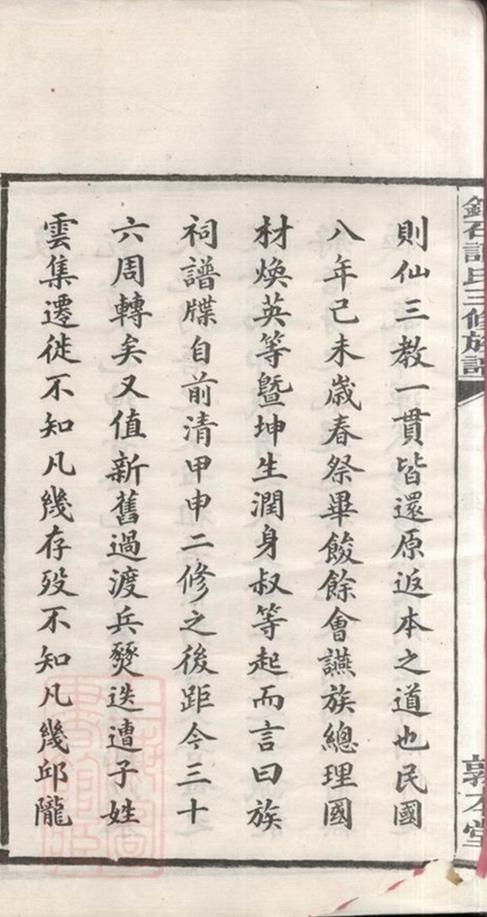 則仙三教一貫皆還原返本之道也民國
八年己未歲春祭畢餕餘會讌族總理國
材煥英等暨坤生潤身叔等起而言曰族
祠譜牒自前清甲申二修之後距今三十
六周轉矣又值新舊過渡兵燹迭遭子姓
雲集遷徙不知凡幾存歿不知凡幾邱隴
氏三修族譜
敦本堂